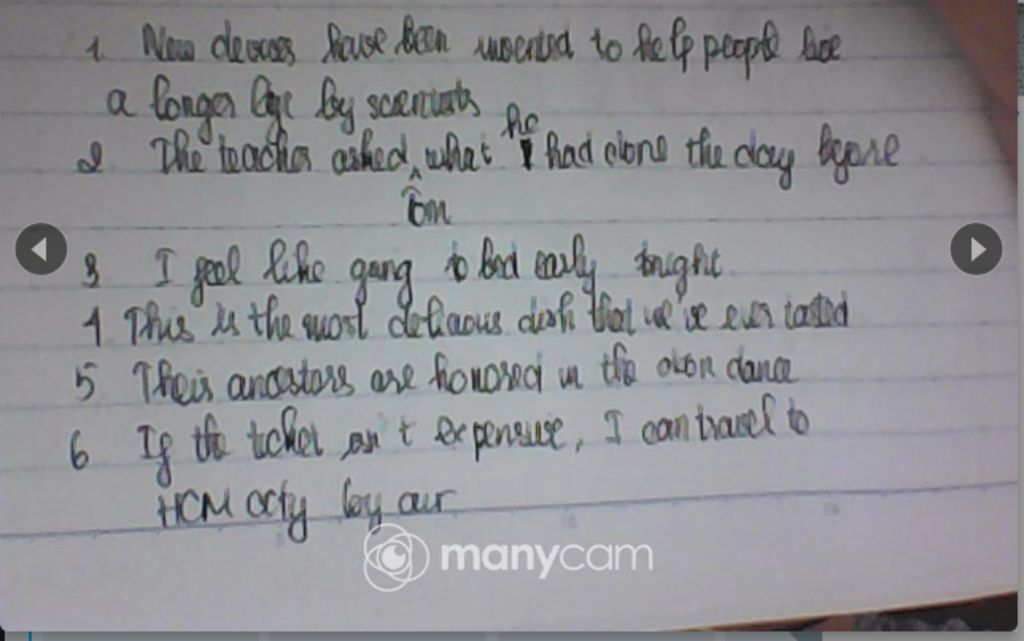 1 New devices have been invented to help people live
a longer life by scientists
he
2 The teacher asked what had done the day before
Tom
3 I feel like going to bed early tonight
4 This is the most delicious dish that we've ever tasted
5 Their ancestors are honored in the dance
6 If the ticket isn't expensive, I can travel to
HCM city by air
manycam